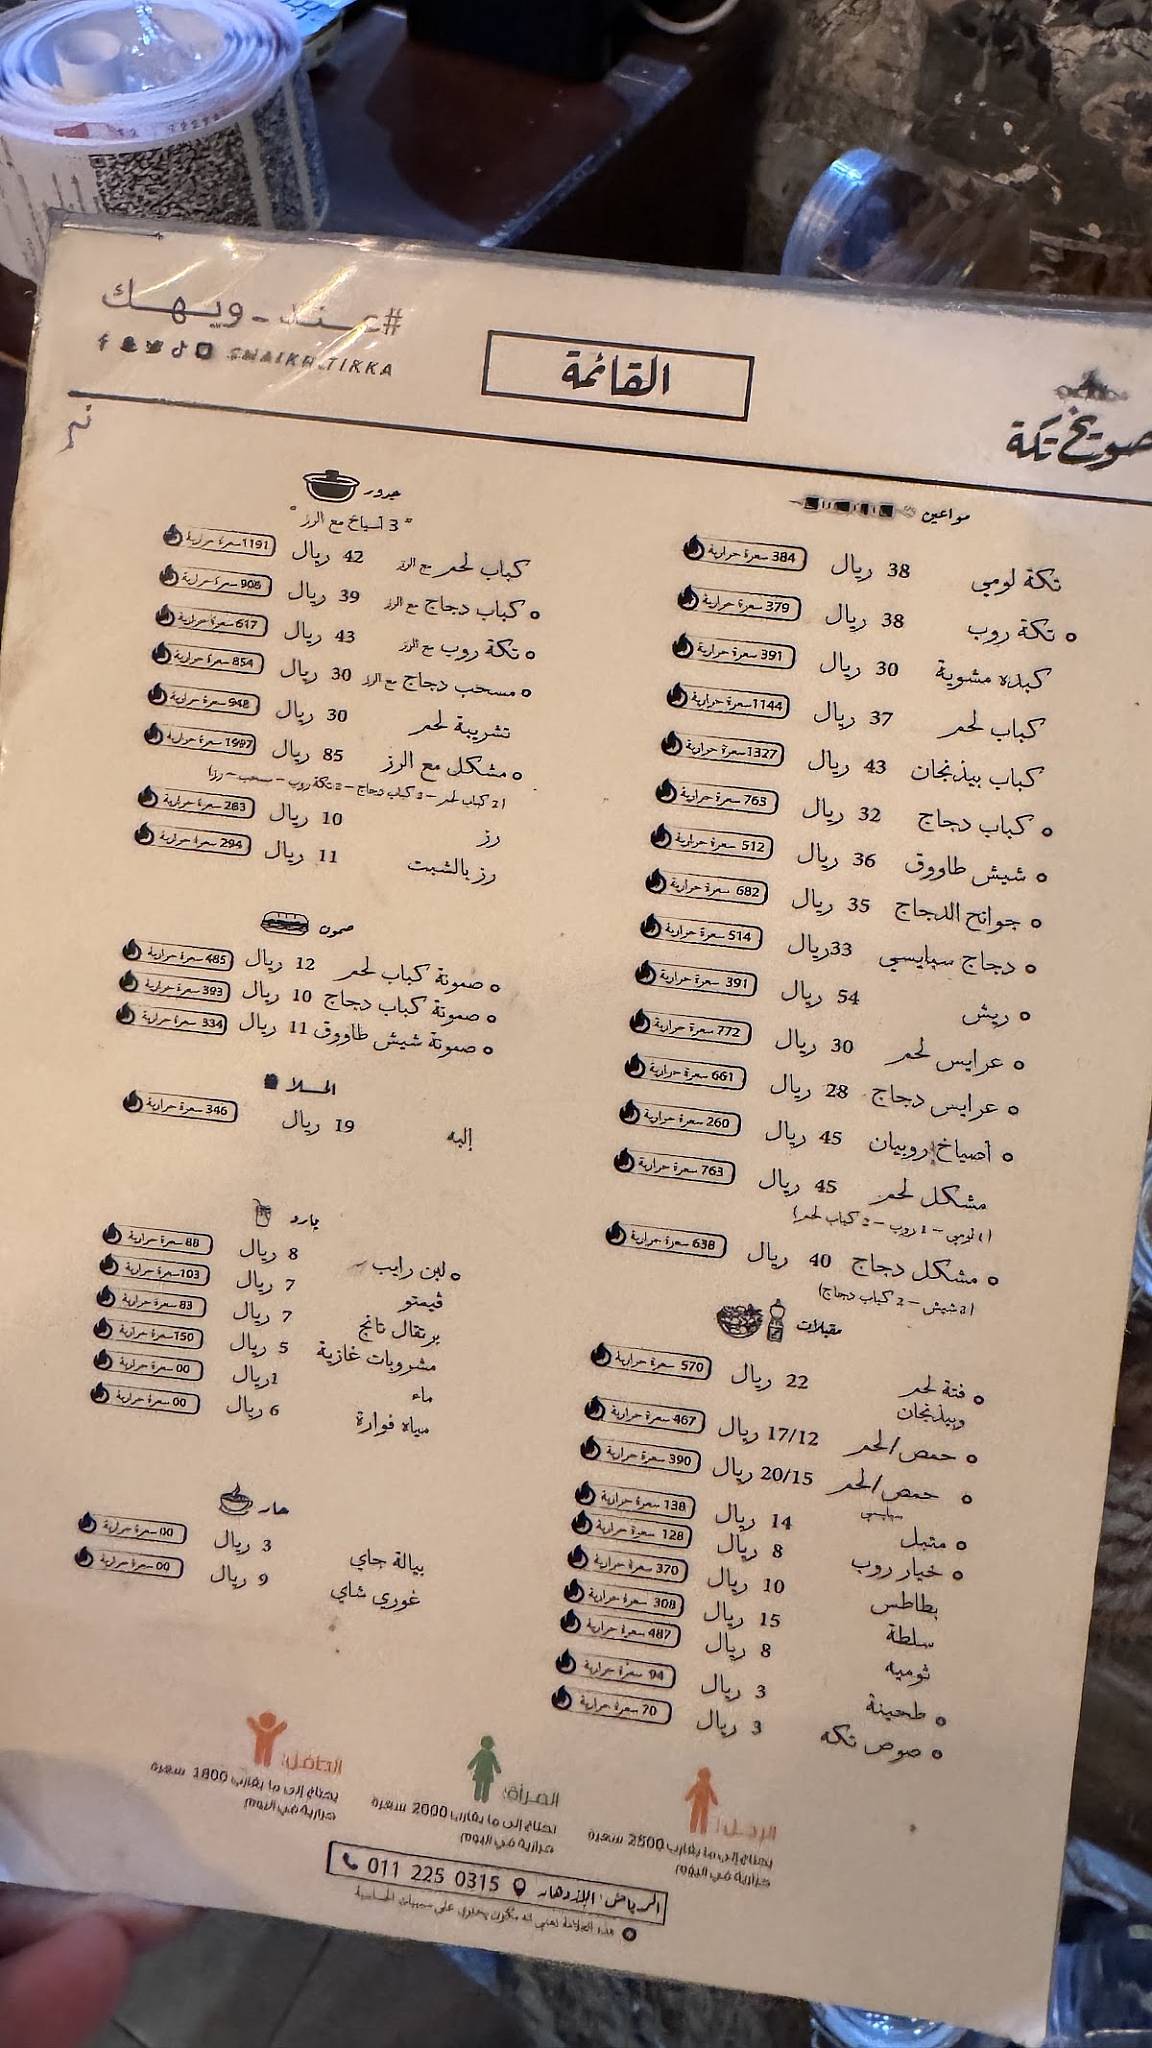 #عند_ويهك
SHAIKH.TIKKA
القائمة
صويخ تكة
مواعين
تكة لومي 38 ريال 384 سعرة حرارية
تكة روب 38 ريال 379 سعرة حرارية
كبده مشوية 30 ريال 391 سعرة حرارية
كباب لحم 37 ريال 1144 سعرة حرارية
كباب بيذنجان 43 ريال 1327 سعرة حرارية
كباب دجاج 32 ريال 763 سعرة حرارية
شيش طاووق 36 ريال 512 سعرة حرارية
جوانح الدجاج 35 ريال 682 سعرة حرارية
دجاج سبايسي 33ريال 514 سعرة حرارية
ريش 54 ريال 391 سعرة حرارية
عرايس لحم 30 ريال 772 سعرة حرارية
عرايس دجاج 28 ريال 661 سعرة حرارية
أصياخ روبيان 45 ريال 260 سعرة حرارية
مشكل لحم 45 ريال 763 سعرة حرارية
(1 لومي - 1 روب - 2 كباب لحم)
مشكل دجاج 40 ريال 638 سعرة حرارية
(2 شيش - 2 كباب دجاج)
مقبلات
فتة لحم 22 ريال 570 سعرة حرارية
وبيذنجان
حمص/لحم 17/12 ريال 467 سعرة حرارية
حمص/لحم 20/15 ريال 390 سعرة حرارية
سبايسي
متبل 14 ريال 138 سعرة حرارية
خيار روب 8 ريال 128 سعرة حرارية
بطاطس 10 ريال 370 سعرة حرارية
سلطة 15 ريال 308 سعرة حرارية
ثوميه 8 ريال 487 سعرة حرارية
طحينة 3 ريال 94 سعرة حرارية
صوص تكه 3 ريال 70 سعرة حرارية
جدور
" 3 أسياخ مع الرز "
كباب لحم مع الرز 42 ريال 1191 سعرة حرارية
كباب دجاج مع الرز 39 ريال 906 سعرة حرارية
تكة روب مع الرز 43 ريال 617 سعرة حرارية
مسحب دجاج مع الرز 30 ريال 854 سعرة حرارية
تشريبة لحم 30 ريال 948 سعرة حرارية
مشكل مع الرز 85 ريال 1997 سعرة حرارية
(2 كباب لحم - 2 كباب دجاج - 2 تكة روب - مسحب - رز)
رز 10 ريال 283 سعرة حرارية
رز بالشبت 11 ريال 294 سعرة حرارية
صمون
صمونة كباب لحم 12 ريال 485 سعرة حرارية
صمونة كباب دجاج 10 ريال 393 سعرة حرارية
صمونة شيش طاووق 11 ريال 334 سعرة حرارية
الحلا
إلبه 19 ريال 346 سعرة حرارية
بارد
لبن رايب 8 ريال 88 سعرة حرارية
ڤيمتو 7 ريال 103 سعرة حرارية
برتقال تانج 7 ريال 83 سعرة حرارية
مشروبات غازية 5 ريال 150 سعرة حرارية
ماء 1ريال 00 سعرة حرارية
مياه فوارة 6 ريال 00 سعرة حرارية
حار
بيالة جاي 3 ريال 00 سعرة حرارية
غوري شاي 9 ريال 00 سعرة حرارية
الرجل:
يحتاج إلى ما يقارب 2500 سعرة
حرارية في اليوم
المرأة:
تحتاج إلى ما يقارب 2000 سعرة
حرارية في اليوم
الطفل:
يحتاج إلى ما يقارب 1800 سعرة
حرارية في اليوم
الرياض، الإزدهار 011 225 0315
هذه العلامة تعني انه مكون يحتوي على مسببات الحساسية